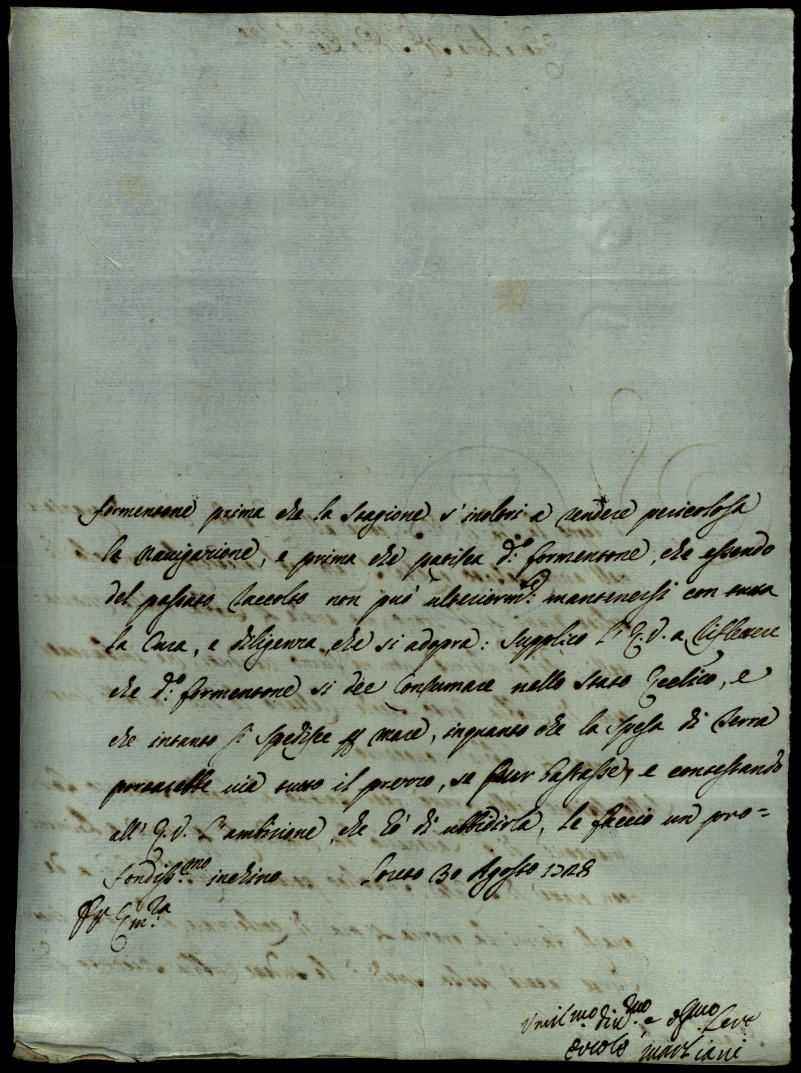 formentone prima che la stagione s'inoltri a rendere pericolosa
la navigazione, e prima che patisca d.º formentone, che essendo
del passato raccolto non può ulteriorm.e mantenersi con tutta
la cura, e diligenza, che si adopra: supplico l'E.V. a riflettere
che d.º formentone si dee consumare nello stato Eccl.ico, e
che intanto si spedisce p mare, inquanto che la spesa di terra
portarebbe via tutto il prezzo, se pur bastasse, e contestando
all'E.V. l'ambizione, che hò di ubbidirla, le faccio un pro=
fondiss.mo inchino Loreto 30 Agosto 1728
Em.za
Umil.mo div.mo e obl.mo serv.
Ercole Marziani